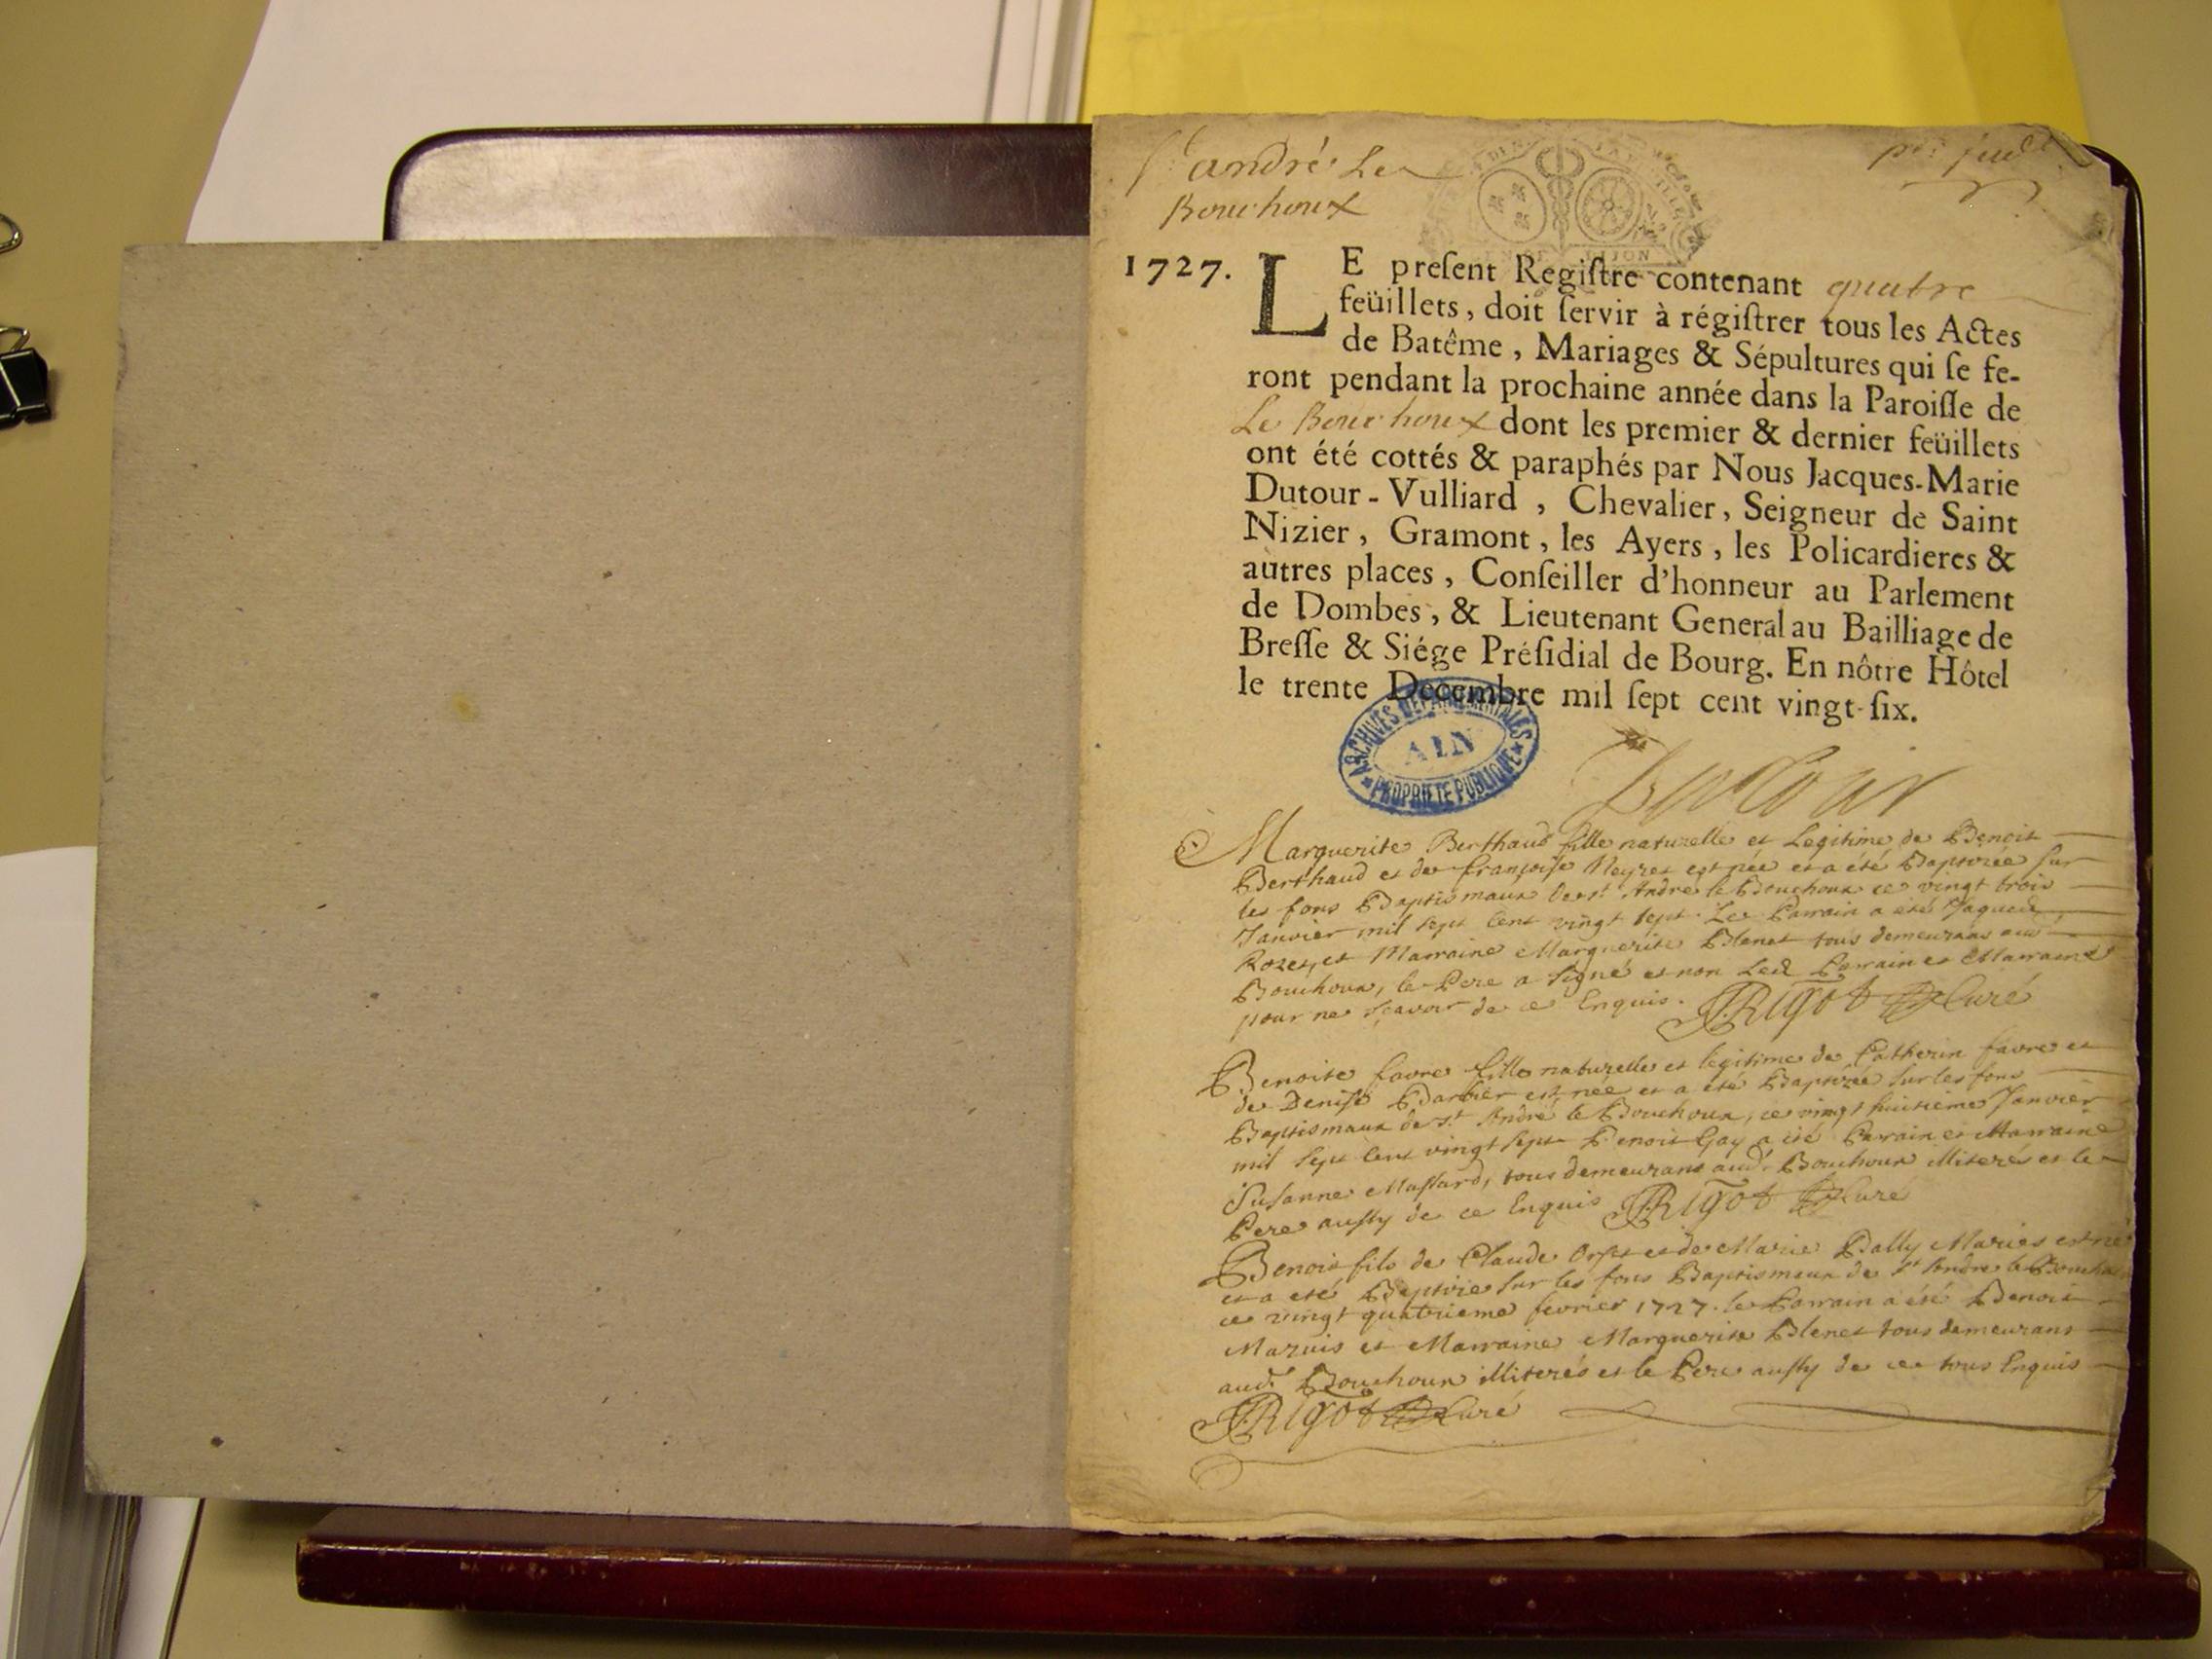 St andré Le
Bouchoux
1727.
LE preſent Regiſtre contenant quatre
feüillets, doit ſervir à régiſtrer tous les Actes
de Batême, Mariages & Sépultures qui ſe fe-
ront pendant la prochaine année dans la Paroiſſe de
Le Bouchoux dont les premier & dernier feüillets
ont été cottés & paraphés par Nous Jacques-Marie
Dutour-Vulliard, Chevalier, Seigneur de Saint
Nizier, Gramont, les Ayers, les Policardieres &
autres places, Conſeiller d'honneur au Parlement
de Dombes, & Lieutenant General au Bailliage de
Breſſe & Siége Préſidial de Bourg. En nôtre Hôtel
le trente Decembre mil ſept cent vingt-ſix.
ARCHIVES DEPARTEMENTALES
AIN
PROPRIETE PUBLIQUE
Dutour
Marguerite Berthaud fille naturelle et Legitime de Benoit
Berthaud et de françoise Neyret est née et a été Baptizée sur
les fons Baptismaux de St André le Bouchoux ce vingt trois
Janvier mil sept cent vingt sept. Le Parrain a été Jaques
Rozet, et Marraine Marguerite Blenet tous demeurans aud
Bouchoux, le Pere a signé et non Led Parrain et Marraine
pour ne sçavoir de ce Enquis. Rigot Curé
Benoite favre fille naturelle et legitime de Catherin favre et
de Denise Barbier est née et a été Baptizée sur les fons
Baptismaux de St André le Bouchoux, ce vingt huitieme Janvier
mil sept cent vingt sept Benoit Gay a été Parrain et Marraine
Susanne Massard, tous demeurans aud. Bouchoux illiterés et le
Pere aussy de ce Enquis Rigot Curé
Benoit fils de Claude et de Marie Bally Mariés est né
et a eté Baptizé sur les fons Baptismaux de St André le
ce vingt quatrieme fevrier 1727. le Parrain a été Benoit
et Marraine Marguerite Blenet tous demeurans
aud. Bouchoux illiterés et le Pere aussy de ce tous Enquis
Rigot Curé